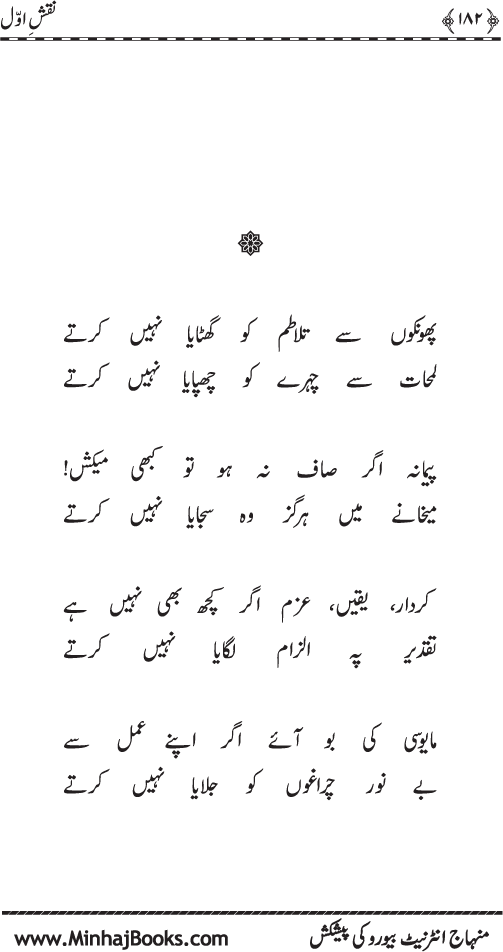 ﴿۱۸۲﴾ نقشِ اوّل
پھونکوں سے تلاطم کو گھٹایا نہیں کرتے
لمحات سے چہرے کو چھپایا نہیں کرتے
پیمانہ اگر صاف نہ ہو تو کبھی میکش!
میخانے میں ہرگز وہ سجایا نہیں کرتے
کردار، یقیں، عزم اگر کچھ بھی نہیں ہے
تقدیر پہ الزام لگایا نہیں کرتے
مایوسی کی بو آئے اگر اپنے عمل سے
بے نور چراغوں کو جلایا نہیں کرتے
منہاج انٹرنیٹ بیورو کی پیشکش www.MinhajBooks.com